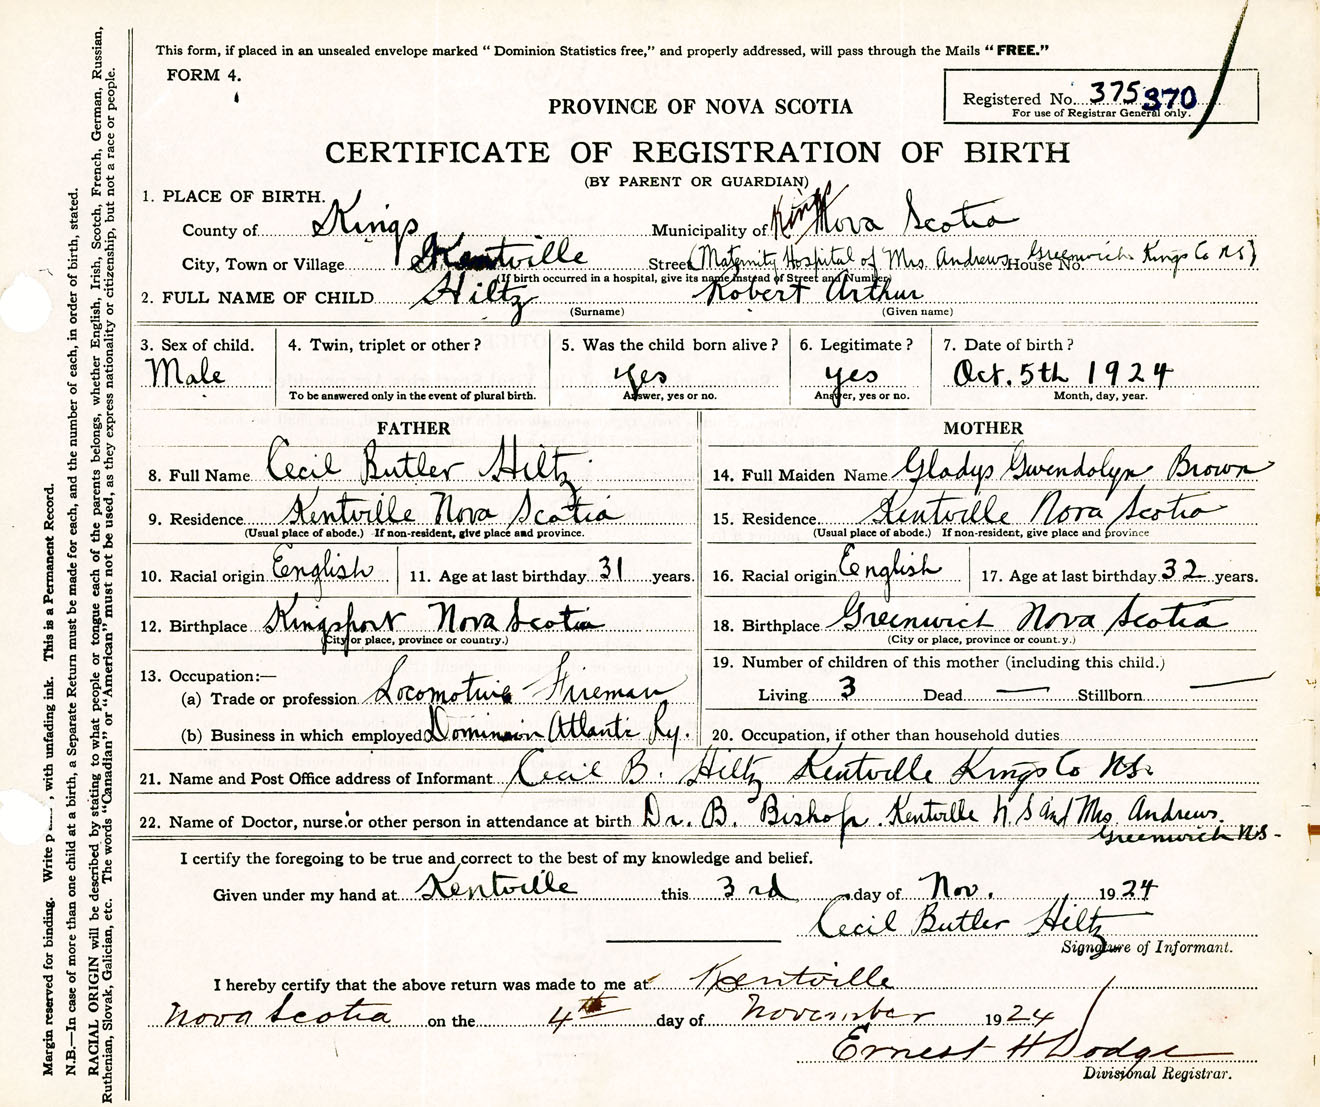 This form, if placed in an unsealed envelope marked " Dominion Statistics free," and properly addressed, will pass through the Mails " FREE."
FORM 4.
Registered No. 375 370
For use of Registrar General only.
PROVINCE OF NOVA SCOTIA
CERTIFICATE OF REGISTRATION OF BIRTH
(BY PARENT OR GUARDIAN)
1. PLACE OF BIRTH.
County of Kings Municipality of Kings Nova Scotia
City, Town or Village Kentville Street (Maternity Hospital of Mrs. Andrews House No. Greenwich Kings Co NS)
(If birth occurred in a hospital, give its name instead of Street and Number)
2. FULL NAME OF CHILD Hiltz Robert Arthur
(Surname) (Given name)
3. Sex of child. 4. Twin, triplet or other ? 5. Was the child born alive ? 6. Legitimate ? 7. Date of birth ?
Male yes yes Oct. 5th 1924
To be answered only in the event of plural birth. Answer, yes or no. Answer, yes or no. Month, day, year.
FATHER MOTHER
8. Full Name Cecil Butler Hiltz 14. Full Maiden Name Gladys Gwendolyn Brown
9. Residence Kentville Nova Scotia 15. Residence Kentville Nova Scotia
(Usual place of abode.) If non-resident, give place and province. (Usual place of abode.) If non-resident, give place and province
10. Racial origin English 11. Age at last birthday 31 years. 16. Racial origin English 17. Age at last birthday 32 years.
12. Birthplace Kingsport Nova Scotia 18. Birthplace Greenwich Nova Scotia
(City or place, province or country.) (City or place, province or count.y.)
13. Occupation:— 19. Number of children of this mother (including this child.)
(a) Trade or profession Locomotive Fireman Living 3 Dead — Stillborn —
(b) Business in which employed Dominion Atlantic Ry. 20. Occupation, if other than household duties
21. Name and Post Office address of Informant Cecil B. Hiltz Kentville Kings Co NS.
22. Name of Doctor, nurse or other person in attendance at birth Dr. B. Bishop Kentville N.S and Mrs. Andrews.
Greenwich NS-
I certify the foregoing to be true and correct to the best of my knowledge and belief.
Given under my hand at Kentville this 3rd day of Nov. 1924
Cecil Butler Hiltz
Signature of Informant.
I hereby certify that the above return was made to me at Kentville
Nova Scotia on the 4th day of November 1924
Ernest H Dodge
Divisional Registrar.
Margin reserved for binding. Write , with unfading ink. This is a Permanent Record.
N.B.—In case of more than one child at a birth, a Separate Return must be made for each, and the number of each, in order of birth, stated.
RACIAL ORIGIN will be described by stating to what people or tongue each of the parents belongs, whether English, Irish, Scotch, French, German, Russian,
Ruthenian, Slovak, Galician, etc. The words "Canadian" or "American" must not be used, as they express nationality or citizenship, but not a race or people.